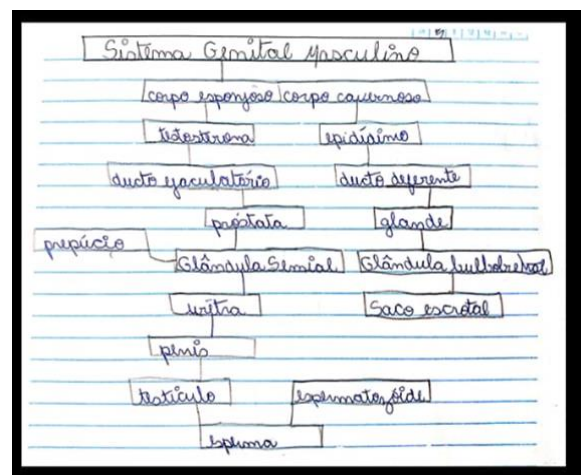 Sistema Genital Masculino
corpo esponjoso corpo cavernoso
testosterona epidídimo
ducto ejaculatório ducto deferente
próstata glande
prepúcio
Glândula Semial Glândula bulboretral
uretra Saco escrotal
penis
testículo espermatozóide
esperma